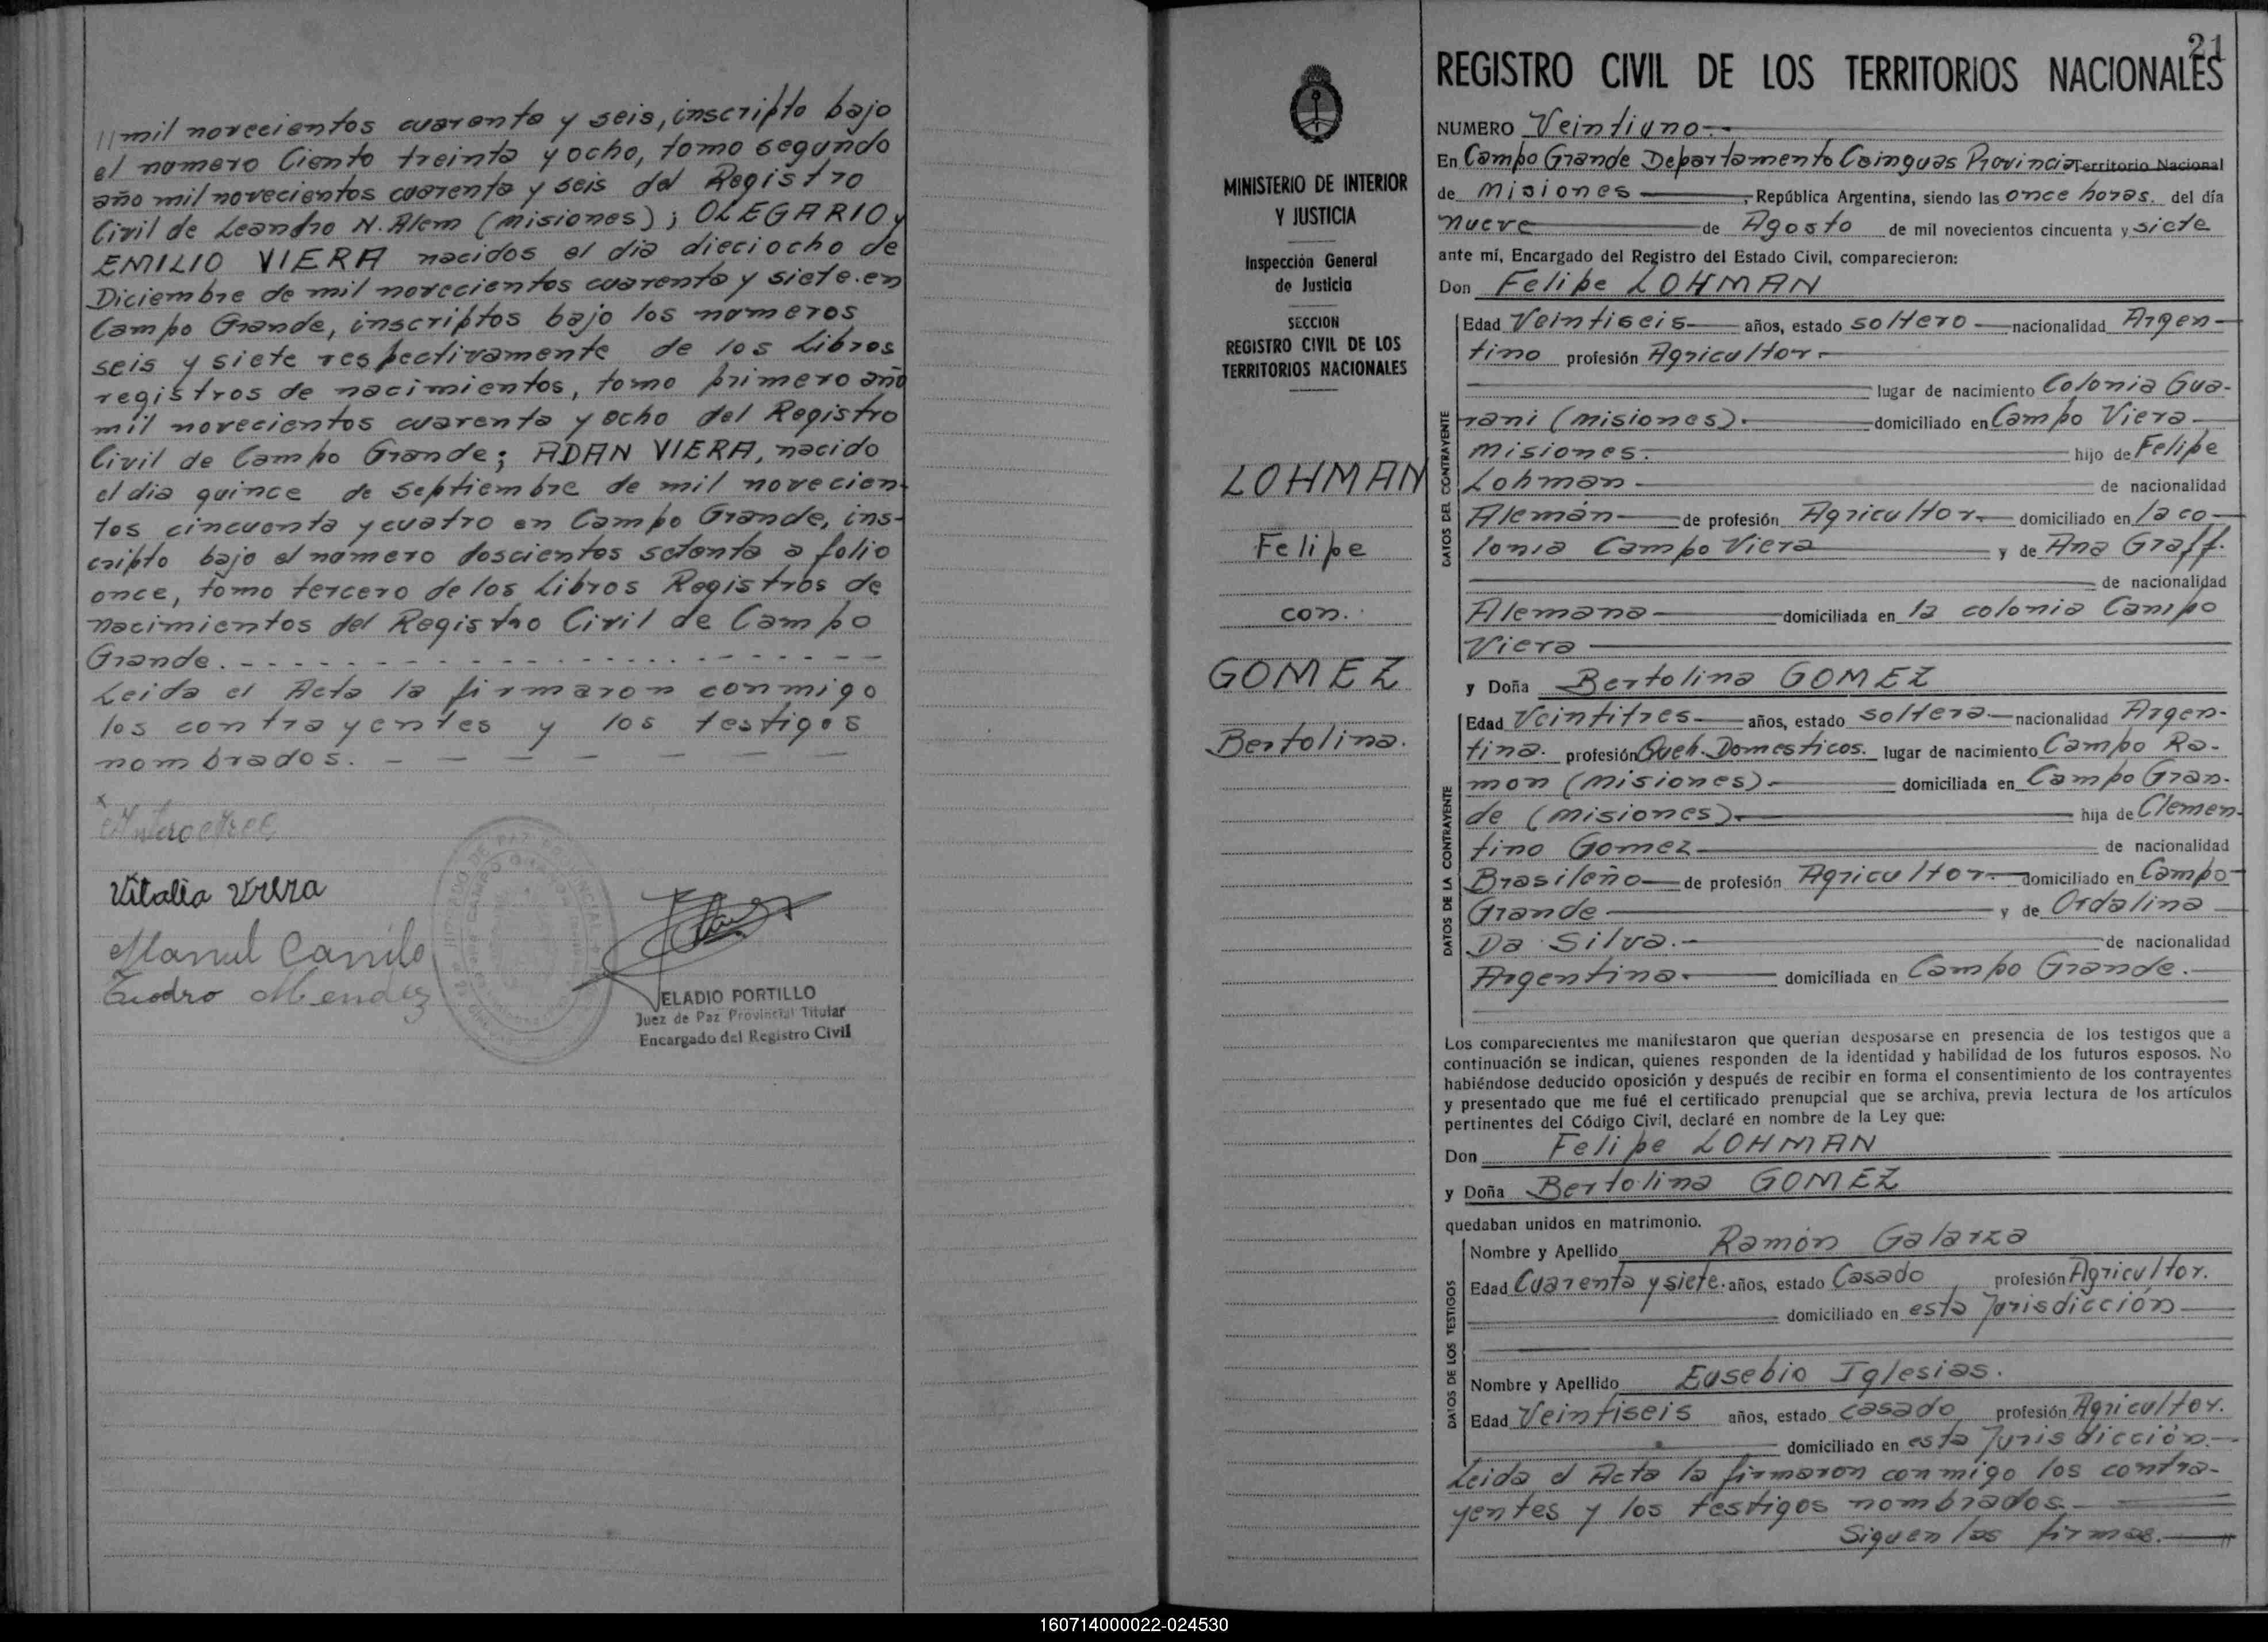 // mil novecientos cuarenta y seis, inscripto bajo
el numero Ciento treinta y ocho, tomo segundo
año mil novecientos cuarenta y seis del Registro
Civil de Leandro N. Alem (Misiones); OLEGARIO y
EMILIO VIERA nacidos el dia dieciocho de
Diciembre de mil novecientos cuarenta y siete en
Campo Grande, inscriptos bajo los numeros
seis y siete respectivamente de los Libros
registros de nacimientos, tomo primero año
mil novecientos cuarenta y ocho del Registro
Civil de Campo Grande; ADAN VIERA, nacido
el dia quince de Septiembre de mil novecien-
tos cincuenta y cuatro en Campo Grande, ins-
cripto bajo el numero doscientos setenta a folio
once, tomo tercero de los Libros Registros de
nacimientos del Registro Civil de Campo
Grande.
Leida el Acta la firmaron conmigo
los contrayentes y los testigos
nombrados.
x
Vitalia Viera
Manuel Camilo
Teodro Mendez
ELADIO PORTILLO
Juez de Paz Provincial Titular
Encargado del Registro Civil
MINISTERIO DE INTERIOR
Y JUSTICIA
Inspección General
de Justicia
SECCION
REGISTRO CIVIL DE LOS
TERRITORIOS NACIONALES
LOHMAN
Felipe
con.
GOMEZ
Bertolina.
21
REGISTRO CIVIL DE LOS TERRITORIOS NACIONALES
NUMERO Veintiuno.-
En Campo Grande Departamento Cainguas Provincia Territorio Nacional
de Misiones, República Argentina, siendo las once horas. del día
nueve de Agosto de mil novecientos cincuenta y siete
ante mí, Encargado del Registro del Estado Civil, comparecieron:
Don Felipe LOHMAN
DATOS DEL CONTRAYENTE
Edad Veintiseis años, estado soltero nacionalidad Argen-
tino profesión Agricultor.
lugar de nacimiento Colonia Gua-
rani (Misiones). domiciliado en Campo Viera
Misiones. hijo de Felipe
Lohman de nacionalidad
Alemán de profesión Agricultor. domiciliado en la co-
lonia Campo Viera y de Ana Graff.
de nacionalidad
Alemana domiciliada en la colonia Campo
Viera
y Doña Bertolina GOMEZ
DATOS DE LA CONTRAYENTE
Edad Veintitres años, estado soltera nacionalidad Argen-
tina. profesión Queh. Domesticos. lugar de nacimiento Campo Ra-
mon (Misiones). domiciliada en Campo Gran-
de (Misiones). hija de Clemen-
tino Gomez de nacionalidad
Brasileño de profesión Agricultor. domiciliado en Campo
Grande y de Ordalina
Da Silva. de nacionalidad
Argentina. domiciliada en Campo Grande.
Los comparecientes me manifestaron que querian desposarse en presencia de los testigos que a
continuación se indican, quienes responden de la identidad y habilidad de los futuros esposos. No
habiéndose deducido oposición y después de recibir en forma el consentimiento de los contrayentes
y presentado que me fué el certificado prenupcial que se archiva, previa lectura de los artículos
pertinentes del Código Civil, declaré en nombre de la Ley que:
Don Felipe LOHMAN
y Doña Bertolina GOMEZ
quedaban unidos en matrimonio.
DATOS DE LOS TESTIGOS
Nombre y Apellido Ramón Galarza
Edad Cuarenta y siete. años, estado Casado profesión Agricultor.
domiciliado en esta Jurisdicción
Nombre y Apellido Eusebio Iglesias.
Edad Veintiseis años, estado casado profesión Agricultor.
domiciliado en esta Jurisdicción.
Leida el Acta la firmaron conmigo los contra-
yentes y los testigos nombrados.
Siguen las firmas. //
160714000022-024530